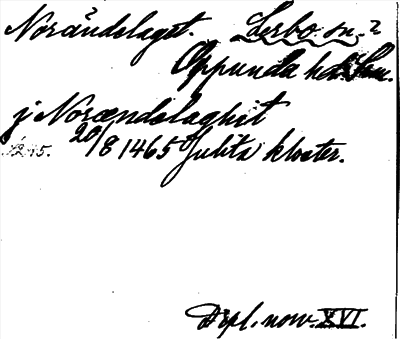 Norändslaget. Lerbo sn. ?
Oppunda hd. Söm.
j Norændslaghit
20/8 1465 Julita kloster.
Dipl. nov. XVI.